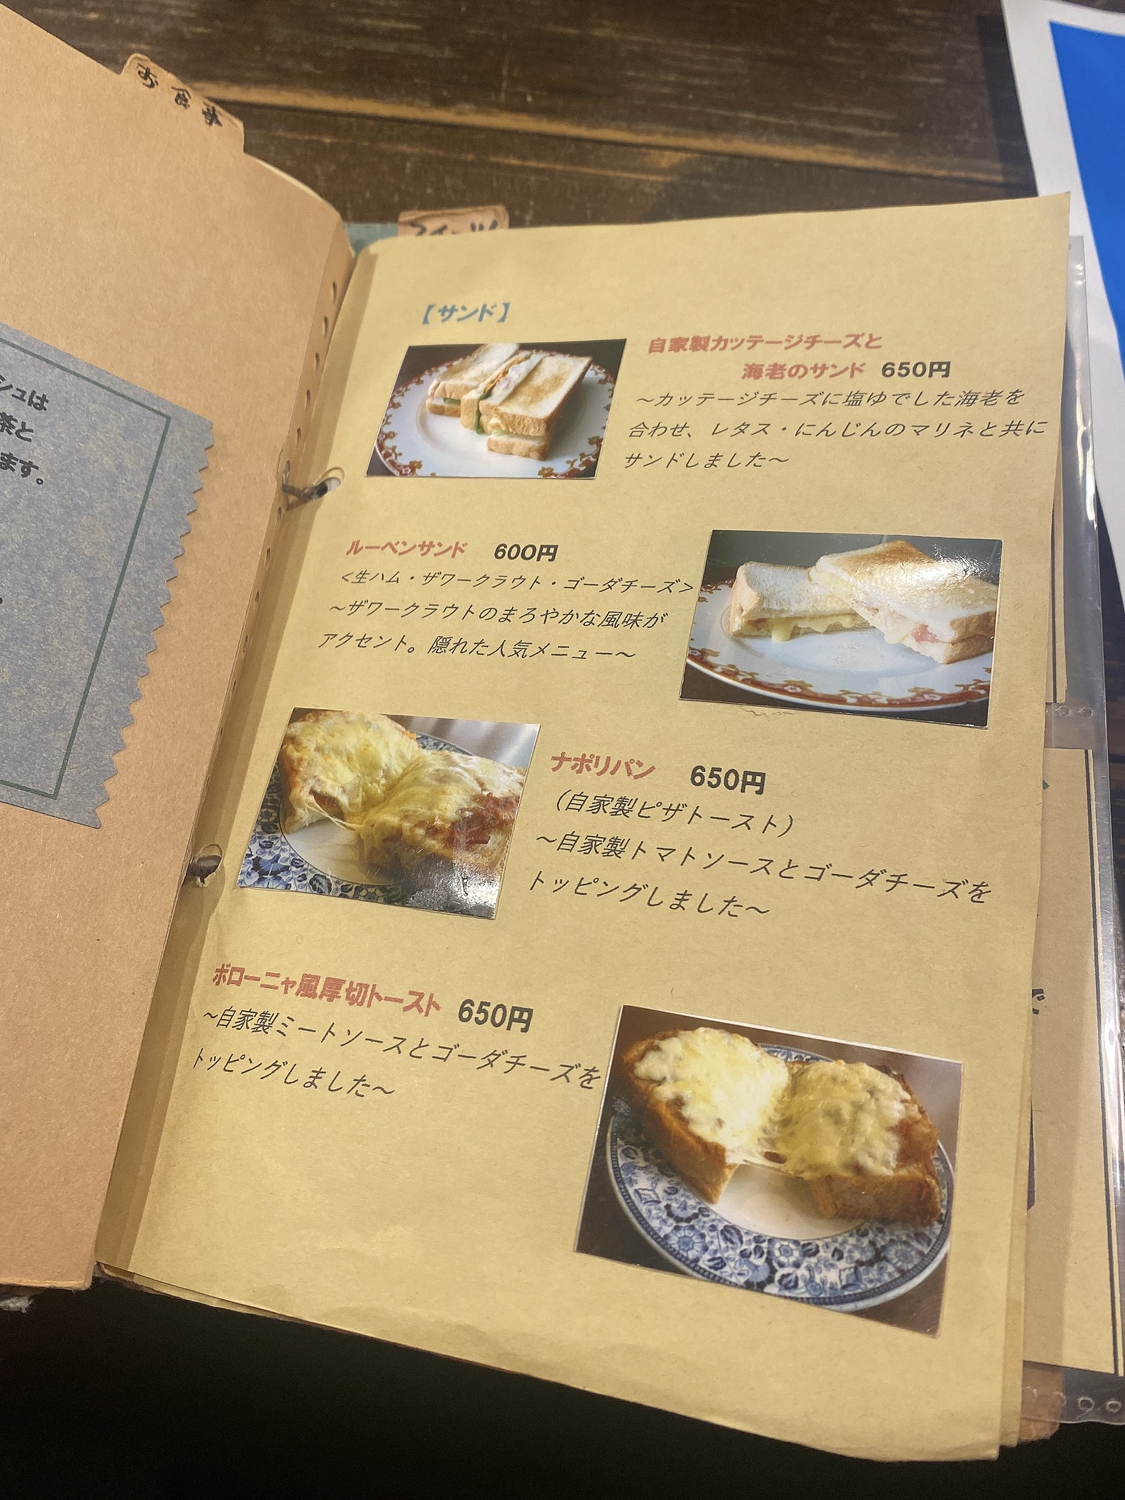 お食事
スイーツ
シュは
茶と
ます。
【サンド】
自家製カッテージチーズと
海老のサンド 650円
～カッテージチーズに塩ゆでした海老を
合わせ、レタス・にんじんのマリネと共に
サンドしました～
ルーベンサンド 600円
<生ハム・ザワークラウト・ゴーダチーズ>
～ザワークラウトのまろやかな風味が
アクセント。隠れた人気メニュー～
ナポリパン 650円
（自家製ピザトースト）
～自家製トマトソースとゴーダチーズを
トッピングしました～
ボローニャ風厚切トースト 650円
～自家製ミートソースとゴーダチーズを
トッピングしました～